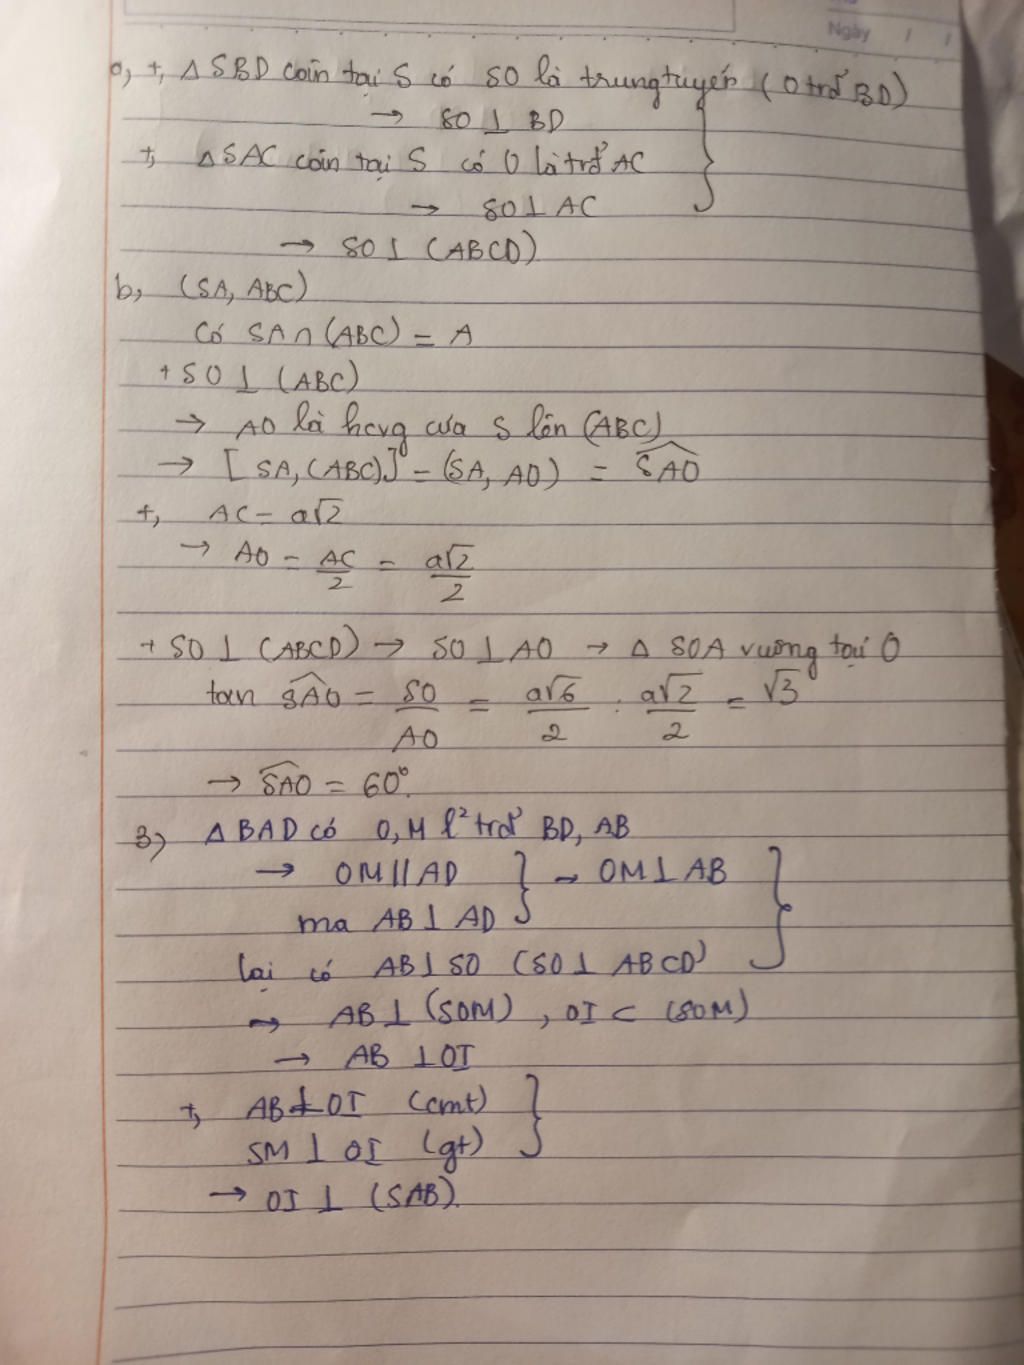 Ngày / /
a, +, △SBD cân tại S có SO là trung tuyến (O trđ BD)
→ SO ⊥ BD
+, △SAC cân tại S có O là trđ AC
→ SO ⊥ AC
→ SO ⊥ (ABCD)
b, (SA, ABC)
Có SA ∩ (ABC) = A
+ SO ⊥ (ABC)
→ AO là hcvg của S lên (ABC)
→ [SA, (ABC)] = (SA, AO) = \widehat{SAO}
+, AC = a√2
→ AO = AC/2 = a√2/2
+ SO ⊥ (ABCD) → SO ⊥ AO → △ SOA vuông tại O
tan \widehat{SAO} = SO/AO = a√6/2 : a√2/2 = √3
→ \widehat{SAO} = 60°.
3) △BAD có O, M l² trđ BD, AB
→ OM // AD } → OM ⊥ AB
mà AB ⊥ AD
lại có AB ⊥ SO (SO ⊥ ABCD)
→ AB ⊥ (SOM) , OI ⊂ (SOM)
→ AB ⊥ OI
+, AB ⊥ OI (cmt)
SM ⊥ OI (gt)
→ OI ⊥ (SAB).